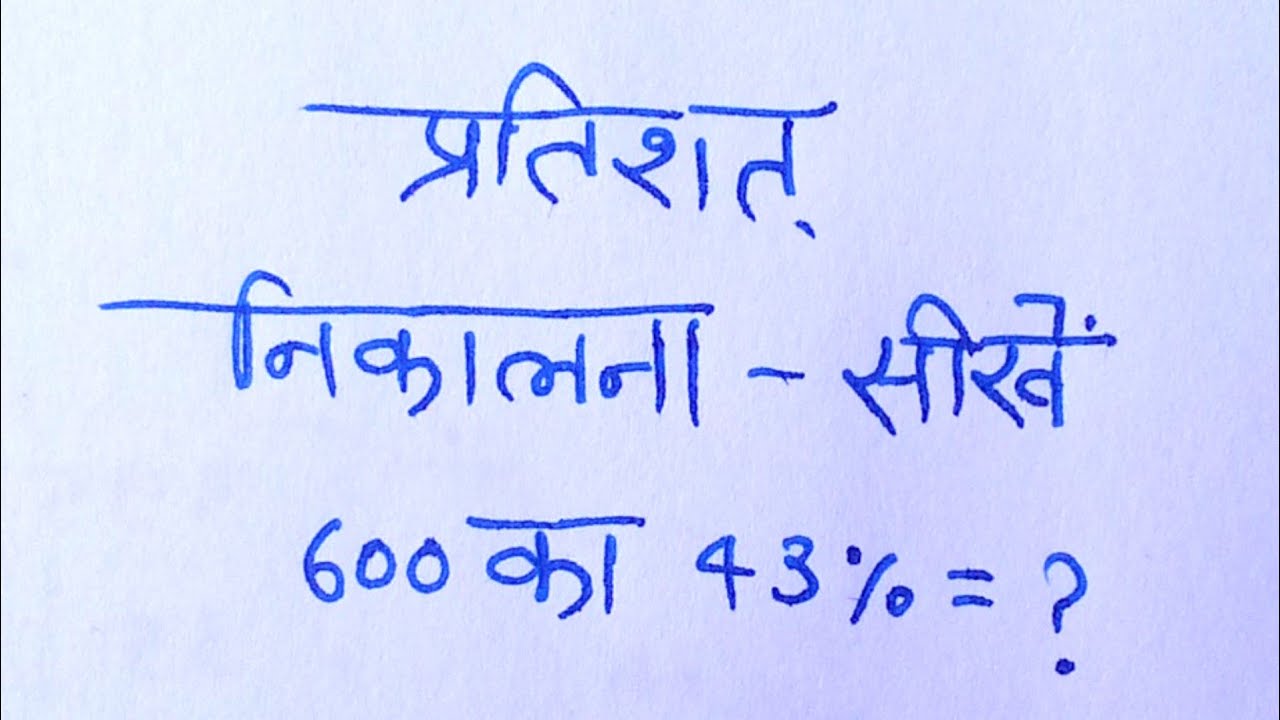 प्रतिशत्
निकालना - सीखें
600 का 43% = ?